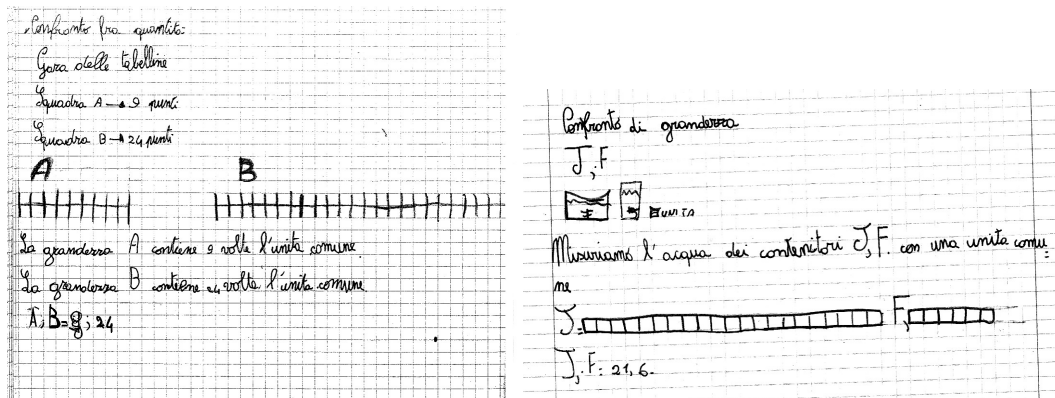 Confronto fra quantità:
Gara delle tabelline
Squadra A → 9 punti
Squadra B → 24 punti
A B
La grandezza A contiene 9 volte l'unita comune
La grandezza B contiene 24 volte l'unita comune
A; B = 9; 24
Confronto di grandezza
J, F
UNITA
Misuriamo l'acqua dei contenitori J, F. con una unita comu=
ne
J= F,
J, F = 21, 6.